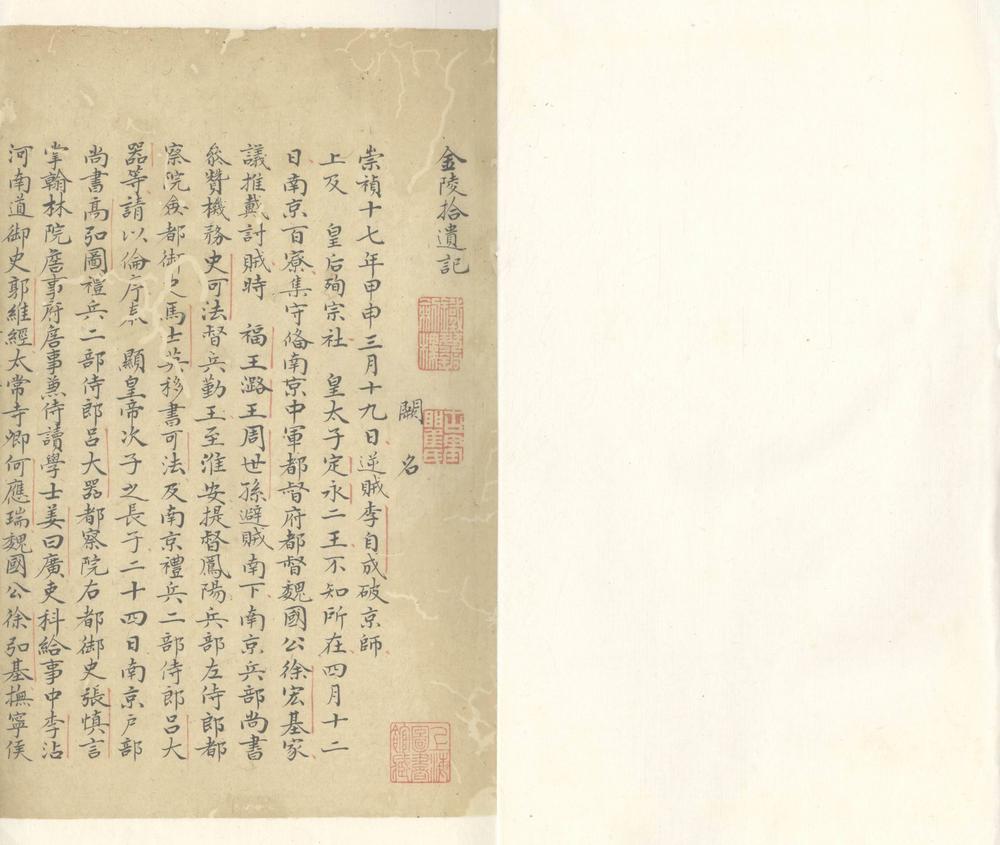 金陵拾遺記
闕名
崇禎十七年甲申三月十九日逆賊李自成破京師
上及 皇后殉宗社 皇太子定永二王不知所在四月十二
日南京百寮集守俻南京中軍都督府都督魏國公徐宏基家
議推戴討賊時 福王潞王周世孫避賊南下南京兵部尚書
叅贊機務史可法督兵勤王至淮安提督鳳陽兵部左侍郎都
察院僉都御史馬士英移書可法及南京禮兵二部侍郎吕大
器等請以倫序素 顯皇帝次子之長子二十四日南京户部
尚書高弘圖禮兵二部侍郎吕大器都察院右都御史張慎言
掌翰林院詹事府詹事兼侍讀學士姜曰廣吏科給事中李沾
河南道御史郭維經太常寺卿何應瑞魏國公徐弘基撫寧侯